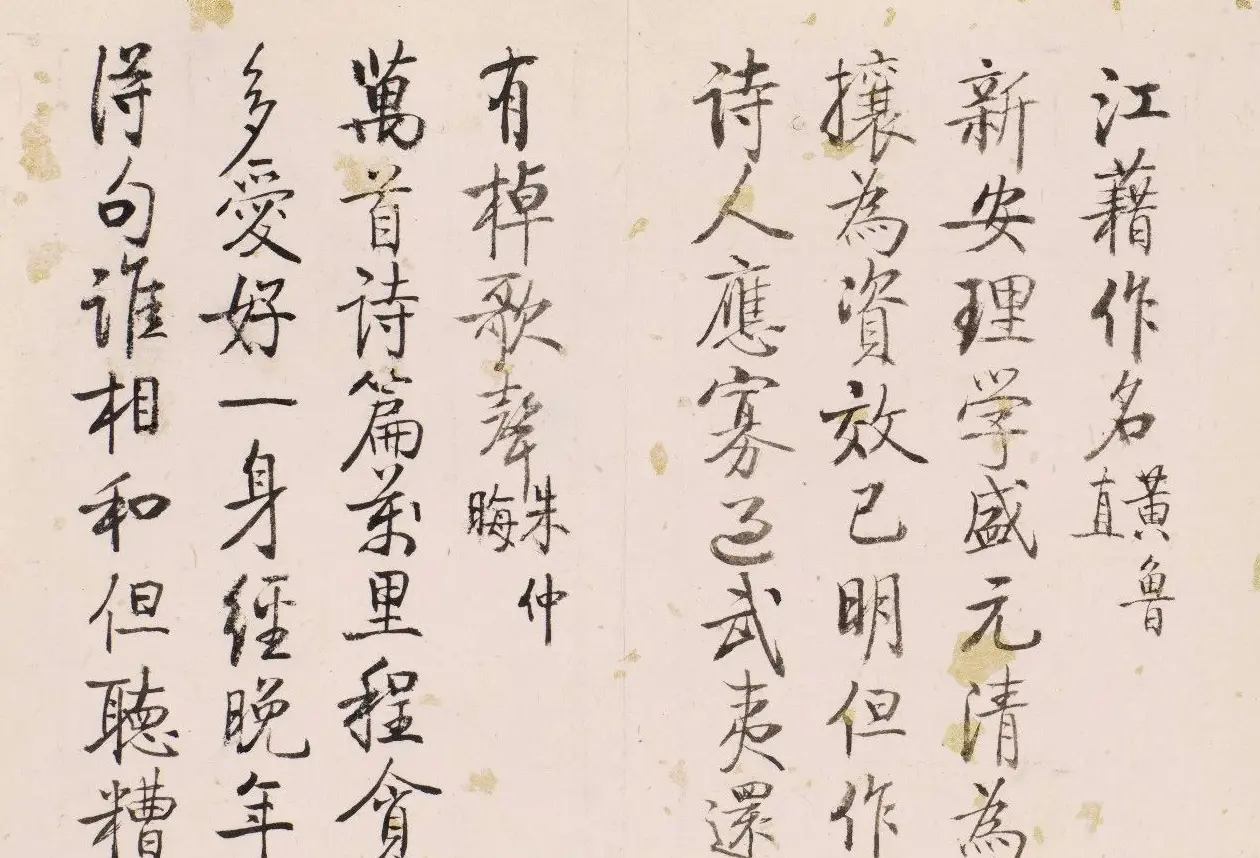 江藉作名黃魯直
新安理学盛元清為
攘為資效已明但作
诗人應寡過武夷還
有棹歌聲朱仲晦
萬首诗篇萬里程貪
多愛好一身經晚年
得句誰相和但聽糟